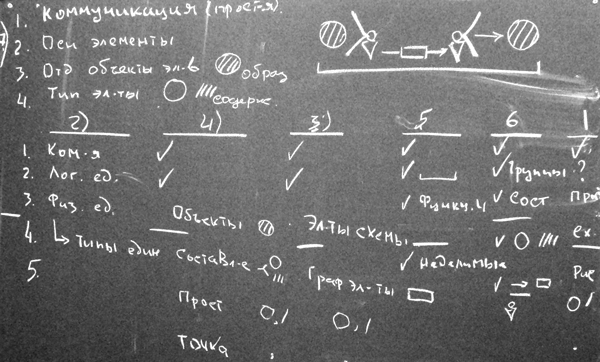 1. Коммуникация (прост-я).
2. Пси элементы
3. Отд объекты эл-в образ
4. Тип эл-ты содерж
2) 4) 3) 5 6 1
1. Ком-я
2. Лог. ед. Группы ?
3. Физ. ед. Объекты Функц. ч Сост
4. Типы един Составл-е Эл-ты схемы
5. Неделимые
Граф эл-ты Рис
Прост
Точка